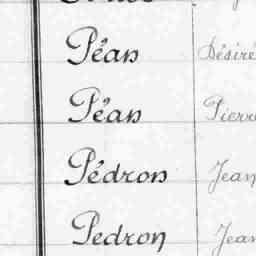 Péan Désiré
Péan Pierre
Pédron Jean
Pedron Jean